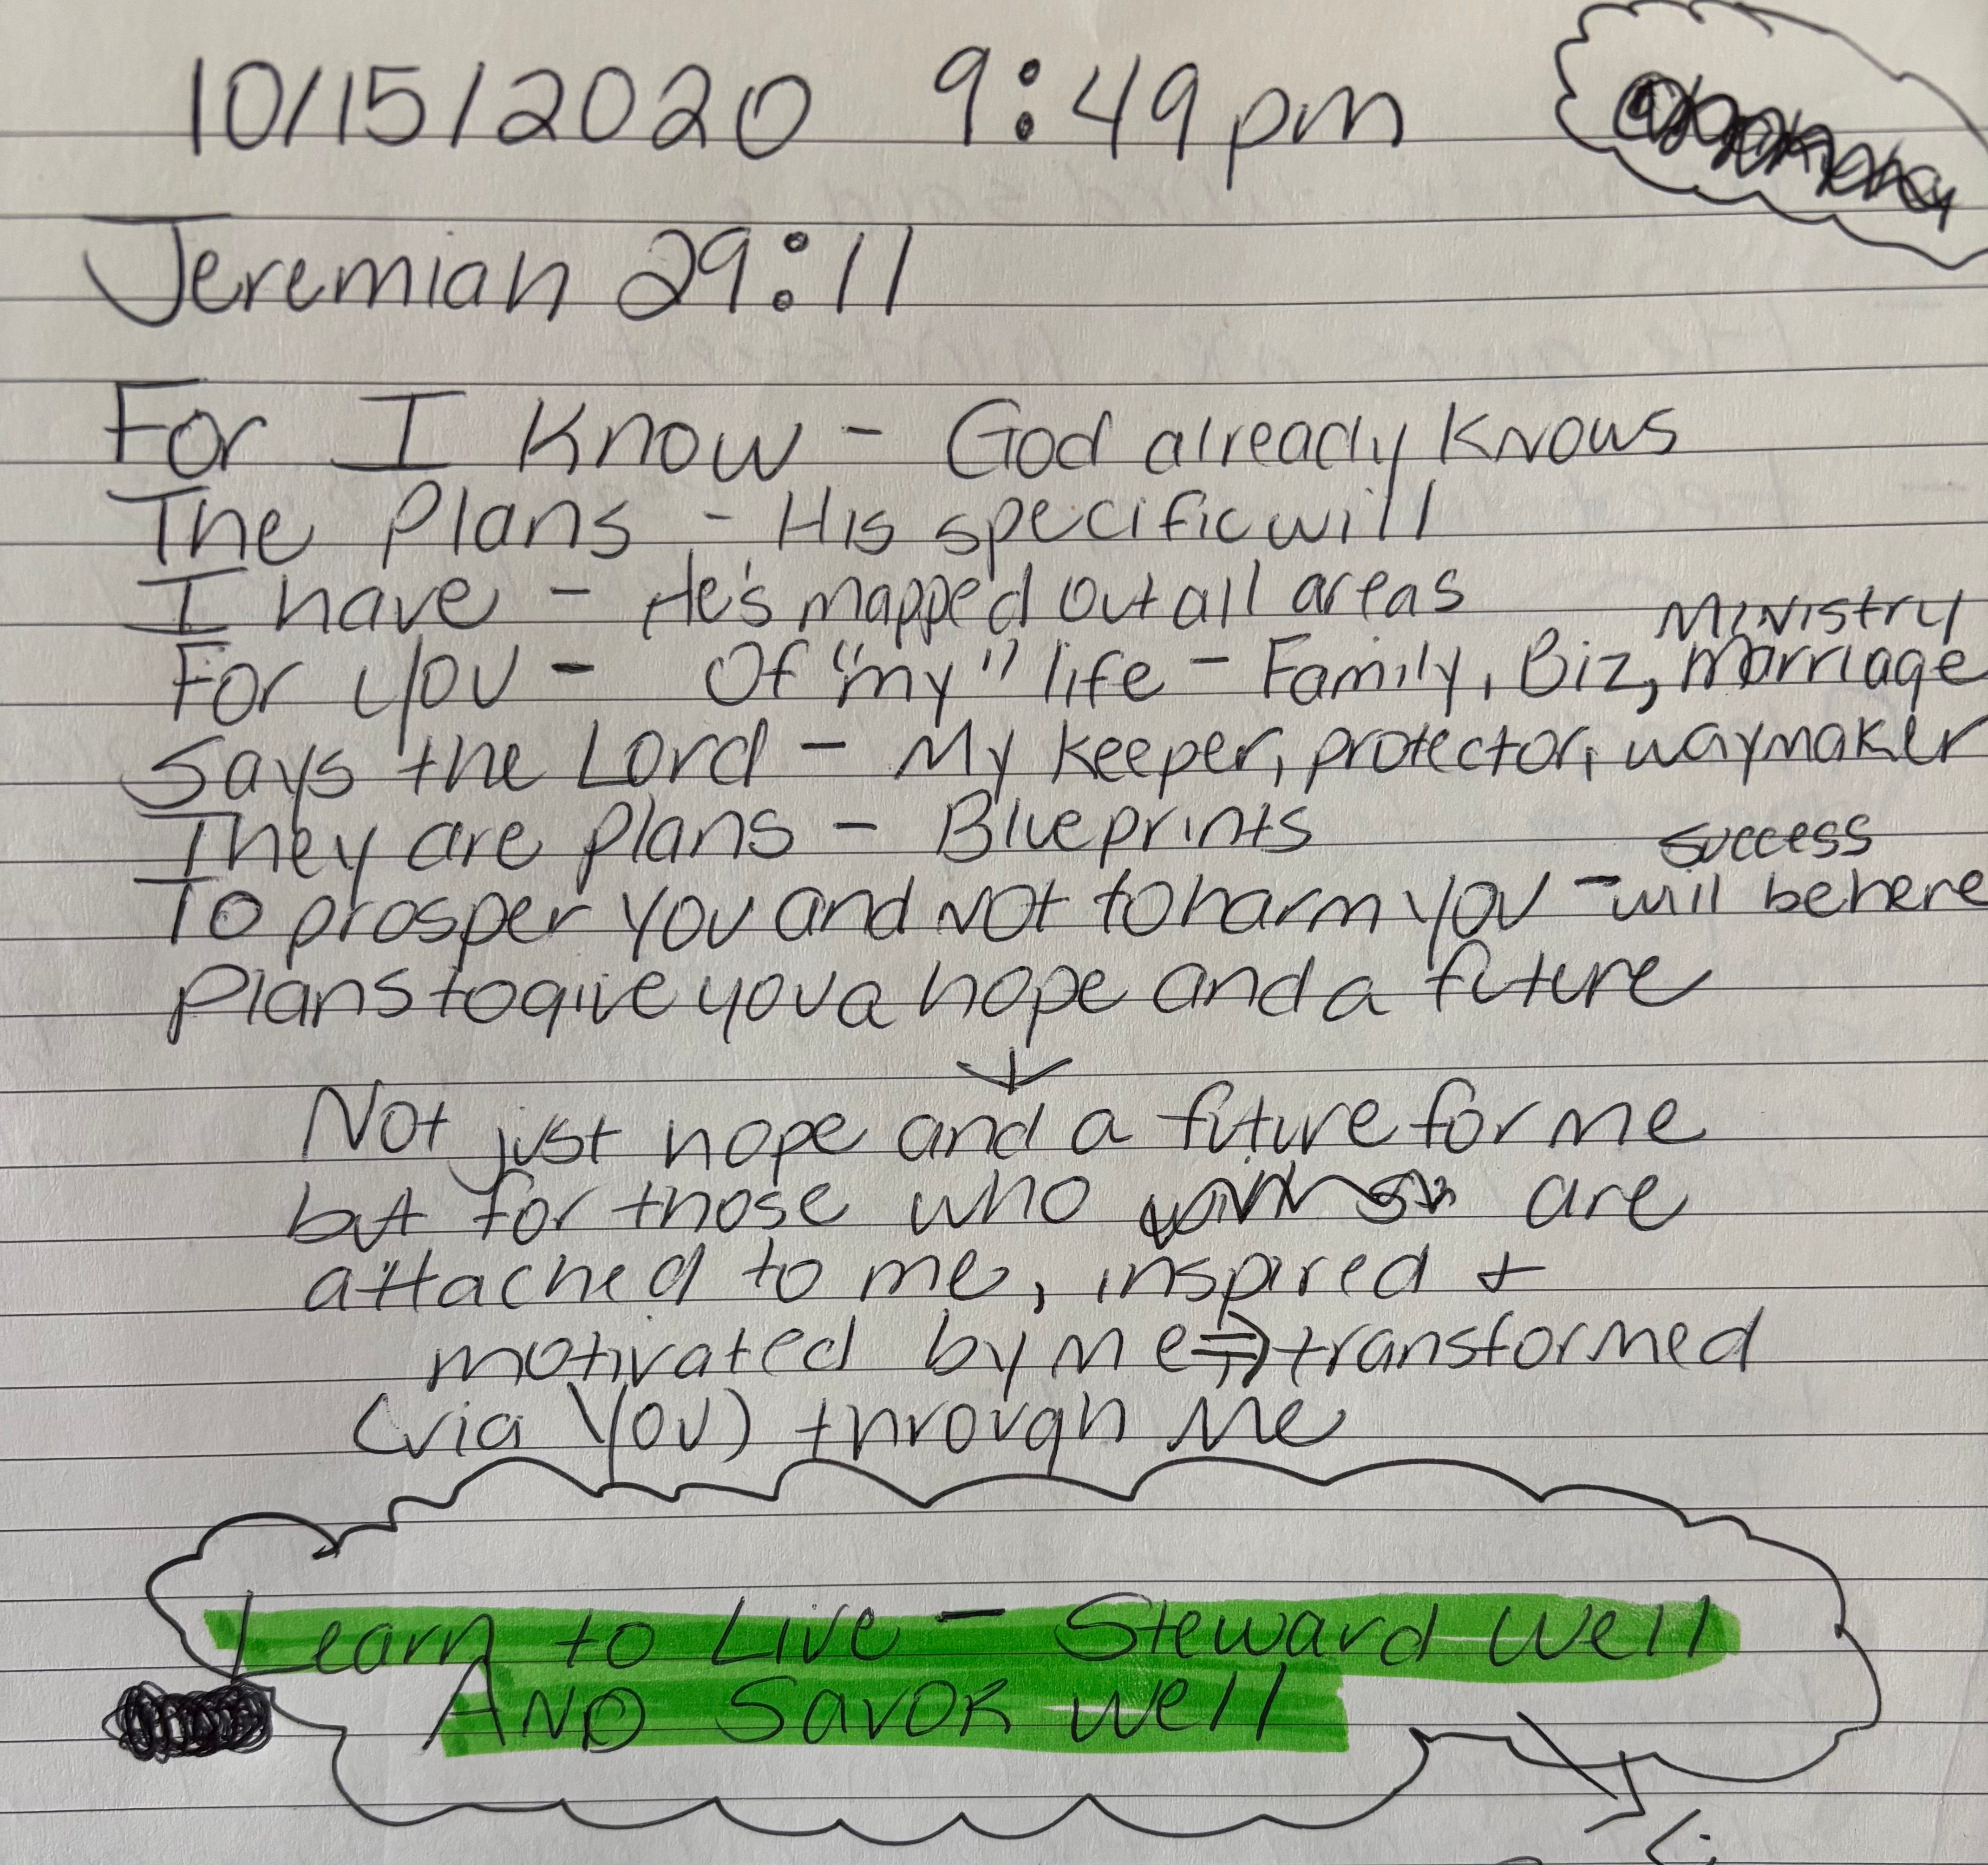 10/15/2020 9:49pm
Jeremiah 29:11
For I Know - God already knows
The Plans - His specific will
I have - He's mapped out all areas
Ministry
For you - Of "my" life - Family, Biz, Marriage
Says the Lord - My keeper, protector, waymaker
They are plans - Blueprints
success
To prosper you and not to harm you - will be here
Plans to give you a hope and a future
Not just hope and a future for me
but for those who are
attached to me, inspired +
motivated by me ⇒ transformed
(via You) through me
Learn to Live - Steward Well
AND Savor well